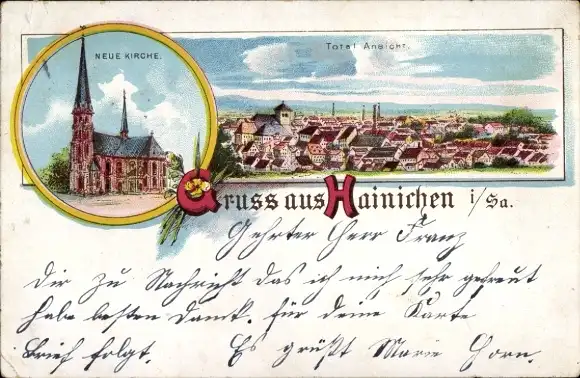 NEUE KIRCHE.
Total Ansicht.
Gruss aus Hainichen i/Sa.
Gehrter Herr Franz
Dir zu Nachricht das ich mich sehr gefreut
habe besten Dank. für deine Karte
Brief folgt. Es grüßt Marie Horn.